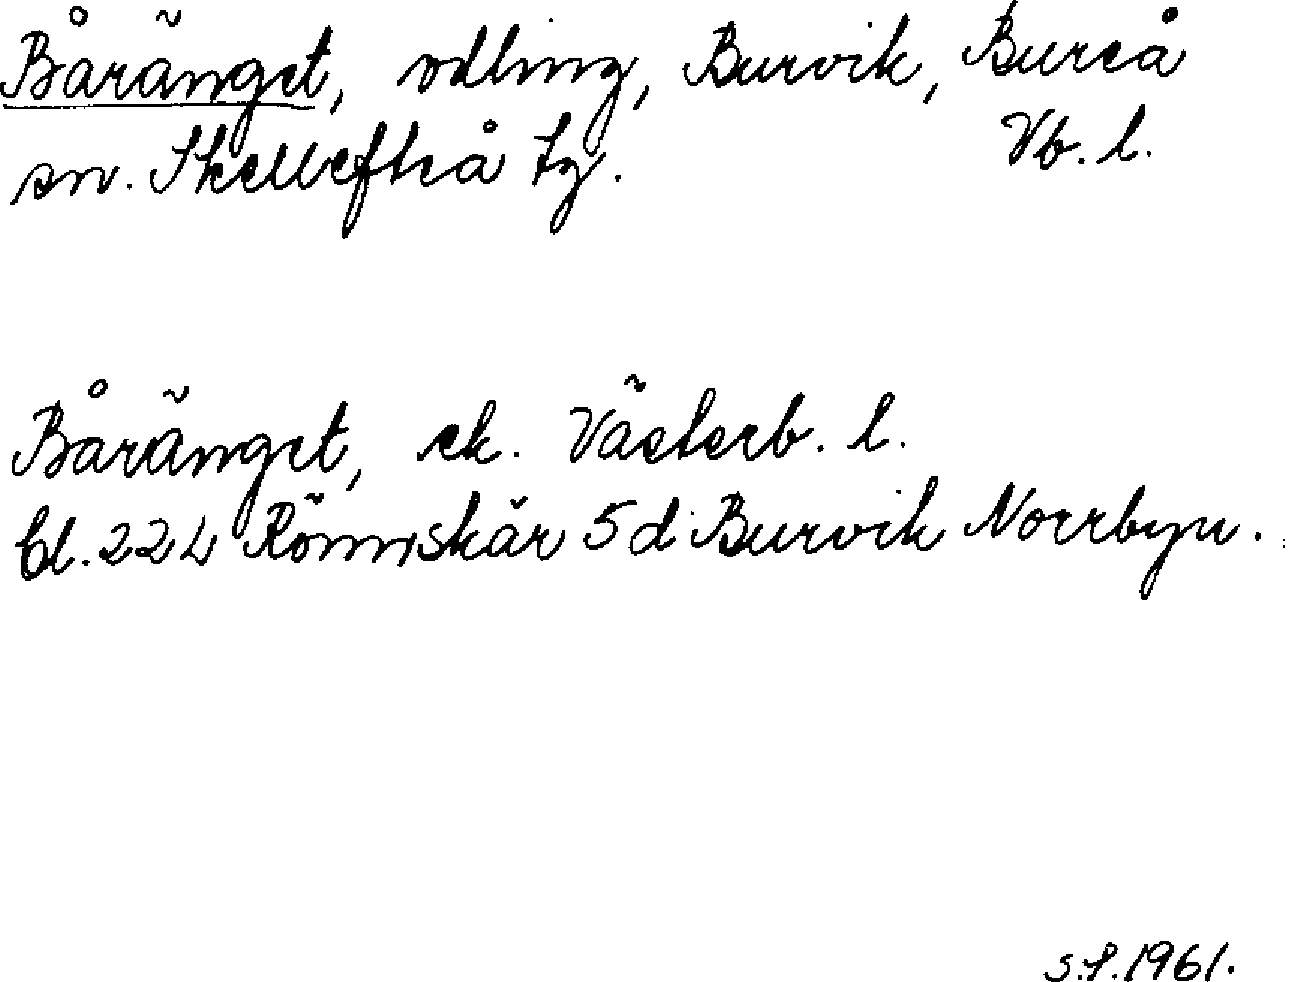 Båränget, odling, Burvik, Bureå
sn. Skellefteå tg. Vb. l.
Båränget, ek. Västerb. l.
bl. 22L Rönnskär 5d Burvik Norrbyn.
S.P. 1961.